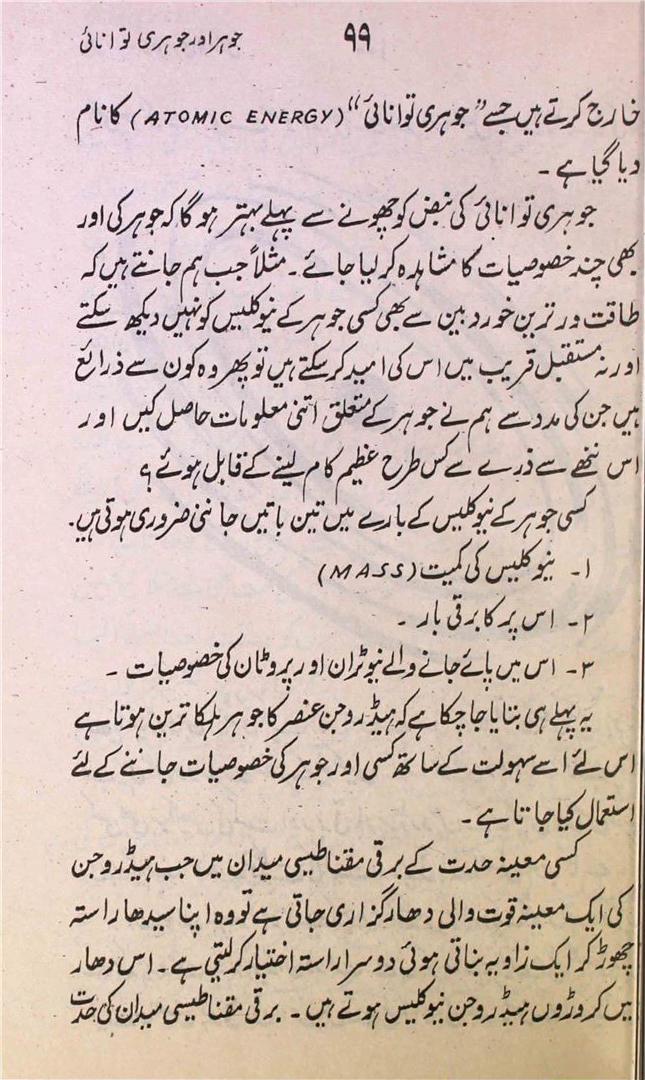 ۹۹
جوہر اور جوہری توانائی
خارج کرتے ہیں جسے ”جوہری توانائی“ (ATOMIC ENERGY) کا نام
دیا گیا ہے ۔
جوہری توانائی کی نبض کو چھونے سے پہلے بہتر ہو گا کہ جوہر کی اور
بھی چند خصوصیات کا مشاہدہ کر لیا جائے ۔ مثلاً جب ہم جانتے ہیں کہ
طاقت ور ترین خوردبین سے بھی کسی جوہر کے نیوکلیس کو نہیں دیکھ سکتے
اور نہ مستقبل قریب میں اس کی امید کر سکتے ہیں تو پھر وہ کون سے ذرائع
ہیں جن کی مدد سے ہم نے جوہر کے متعلق اتنی معلومات حاصل کیں اور
اس ننھے سے ذرے سے کس طرح عظیم کام لینے کے قابل ہوئے ؟
کسی جوہر کے نیوکلیس کے بارے میں تین باتیں جاننی ضروری ہوتی ہیں۔
۱۔ نیوکلیس کی کمیت (MASS)
۲۔ اس پر کا برقی بار ۔
۳۔ اس میں پائے جانے والے نیوٹران اور پروٹان کی خصوصیات ۔
یہ پہلے ہی بتایا جا چکا ہے کہ ہیڈروجن عنصر کا جوہر ہلکا ترین ہوتا ہے
اس لئے اسے سہولت کے ساتھ کسی اور جوہر کی خصوصیات جاننے کے لئے
استعمال کیا جاتا ہے ۔
کسی معینہ حدت کے برقی مقناطیسی میدان میں جب ہیڈروجن
کی ایک معینہ قوت والی دھار گزاری جاتی ہے تو وہ اپنا سیدھا راستہ
چھوڑ کر ایک زاویہ بناتی ہوئی دوسرا راستہ اختیار کر لیتی ہے ۔ اس دھار
میں کروڑوں ہیڈروجن نیوکلیس ہوتے ہیں ۔ برقی مقناطیسی میدان کی حدت